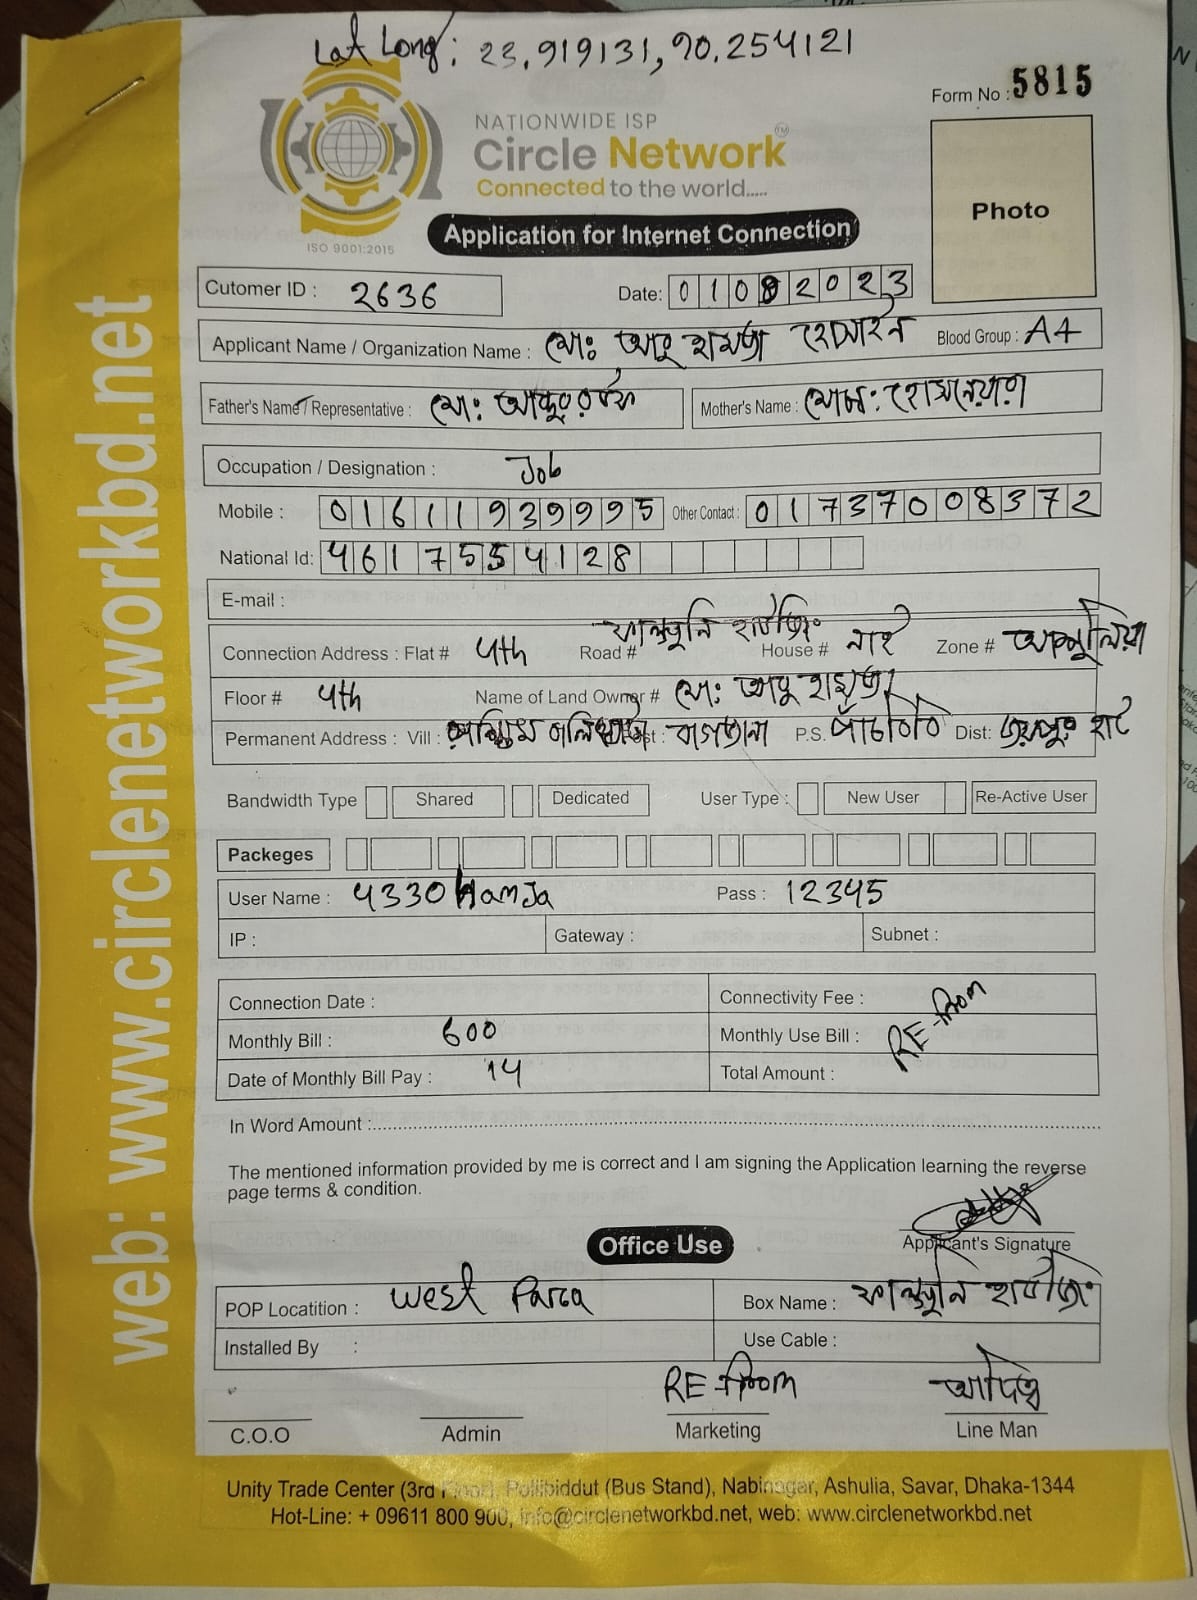 Lat Long: 23.919131, 90.254121
Form No : 5815
NATIONWIDE ISP
Circle Network TM
Connected to the world.....
ISO 9001:2015
Photo
Application for Internet Connection
Cutomer ID : 2636 Date: 01082023
Applicant Name / Organization Name : মোঃ আবু হামজা হোসাইন Blood Group : A+
Father's Name / Representative : মো: Mother's Name : মোছা: হোসনেয়ারা
Occupation / Designation : Job
Mobile : 01611939995 Other Contact : 01737008372
National Id: 4617554128
E-mail :
ফাল্গুনি হাউজিং
Connection Address : Flat # 4th Road # House # নাই Zone # আশুলিয়া
Floor # 4th Name of Land Owner # মো: আবু হামজা
Permanent Address : Vill : পশ্চিম Post : বাগজানা P.S. পাঁচবিবি Dist: জয়পুর হাট
Bandwidth Type Shared Dedicated User Type : New User Re-Active User
Packeges
User Name : 4330HamJa Pass : 12345
IP : Gateway : Subnet :
Connection Date : Connectivity Fee :
Monthly Bill : 600 Monthly Use Bill : RE-from
Date of Monthly Bill Pay : 14 Total Amount :
In Word Amount :
The mentioned information provided by me is correct and I am signing the Application learning the reverse
page terms & condition.
Applicant's Signature
Office Use
POP Locatition : West Para Box Name : ফাল্গুনি হাউজিং
Installed By : Use Cable :
RE-from
C.O.O Admin Marketing Line Man
Unity Trade Center (3rd Floor), Pollibiddut (Bus Stand), Nabinagar, Ashulia, Savar, Dhaka-1344
Hot-Line: + 09611 800 900, info@circlenetworkbd.net, web: www.circlenetworkbd.net
web: www.circlenetworkbd.net